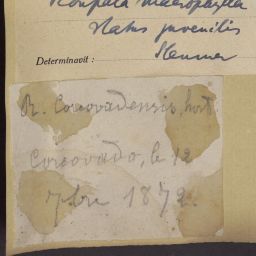 Roupala macrophylla
Status juvenilis
Sleumer
Determinavit :
R. Corcovadensis, hort.
Corcovado, le 12
7bre 1872.